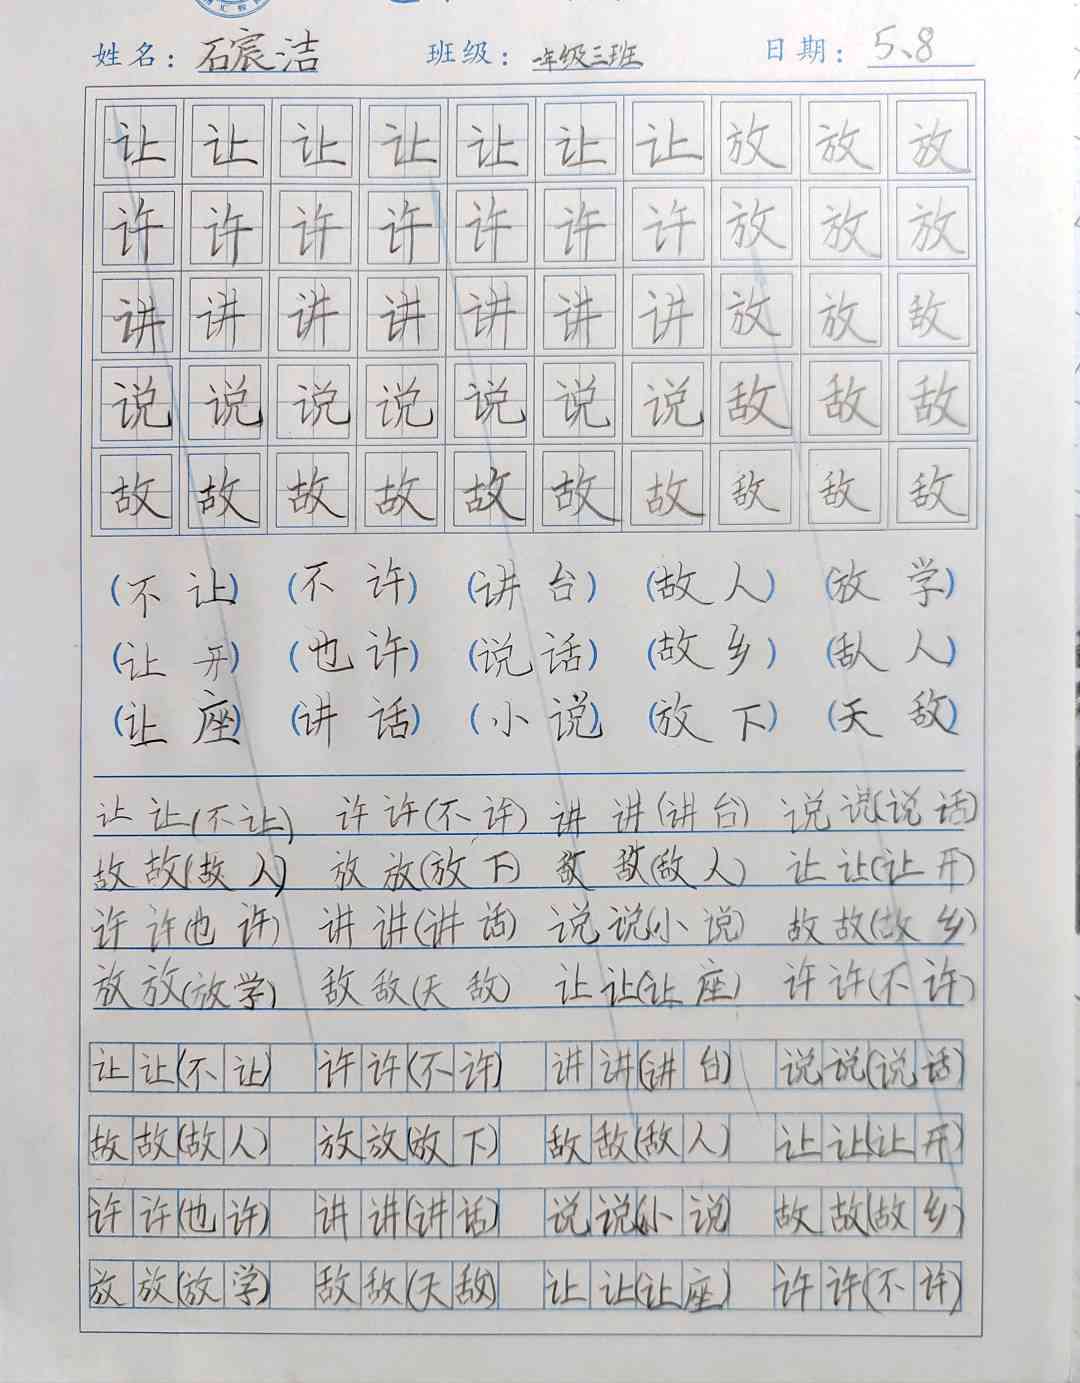 姓名：石宸洁 班级：一年级三班 日期：5、8
让 让 让 让 让 让 让 放 放 放
许 许 许 许 许 许 许 放 放 放
讲 讲 讲 讲 讲 讲 讲 放 放 敌
说 说 说 说 说 说 说 敌 敌 敌
故 故 故 故 故 故 故 敌 敌 敌
(不让) (不许) (讲台) (故人) (放学)
(让开) (也许) (说话) (故乡) (敌人)
(让座) (讲话) (小说) (放下) (天敌)
让 让(不让) 许 许(不许) 讲 讲(讲台) 说 说(说话)
故 故(故人) 放 放(放下) 敌 敌(敌人) 让 让(让开)
许 许(也许) 讲 讲(讲话) 说 说(小说) 故 故(故乡)
放 放(放学) 敌 敌(天敌) 让 让(让座) 许 许(不许)
让 让(不让) 许 许(不许) 讲 讲(讲台) 说 说(说话)
故 故(故人) 放 放(放下) 敌 敌(敌人) 让 让(让开)
许 许(也许) 讲 讲(讲话) 说 说(小说) 故 故(故乡)
放 放(放学) 敌 敌(天敌) 让 让(让座) 许 许(不许)